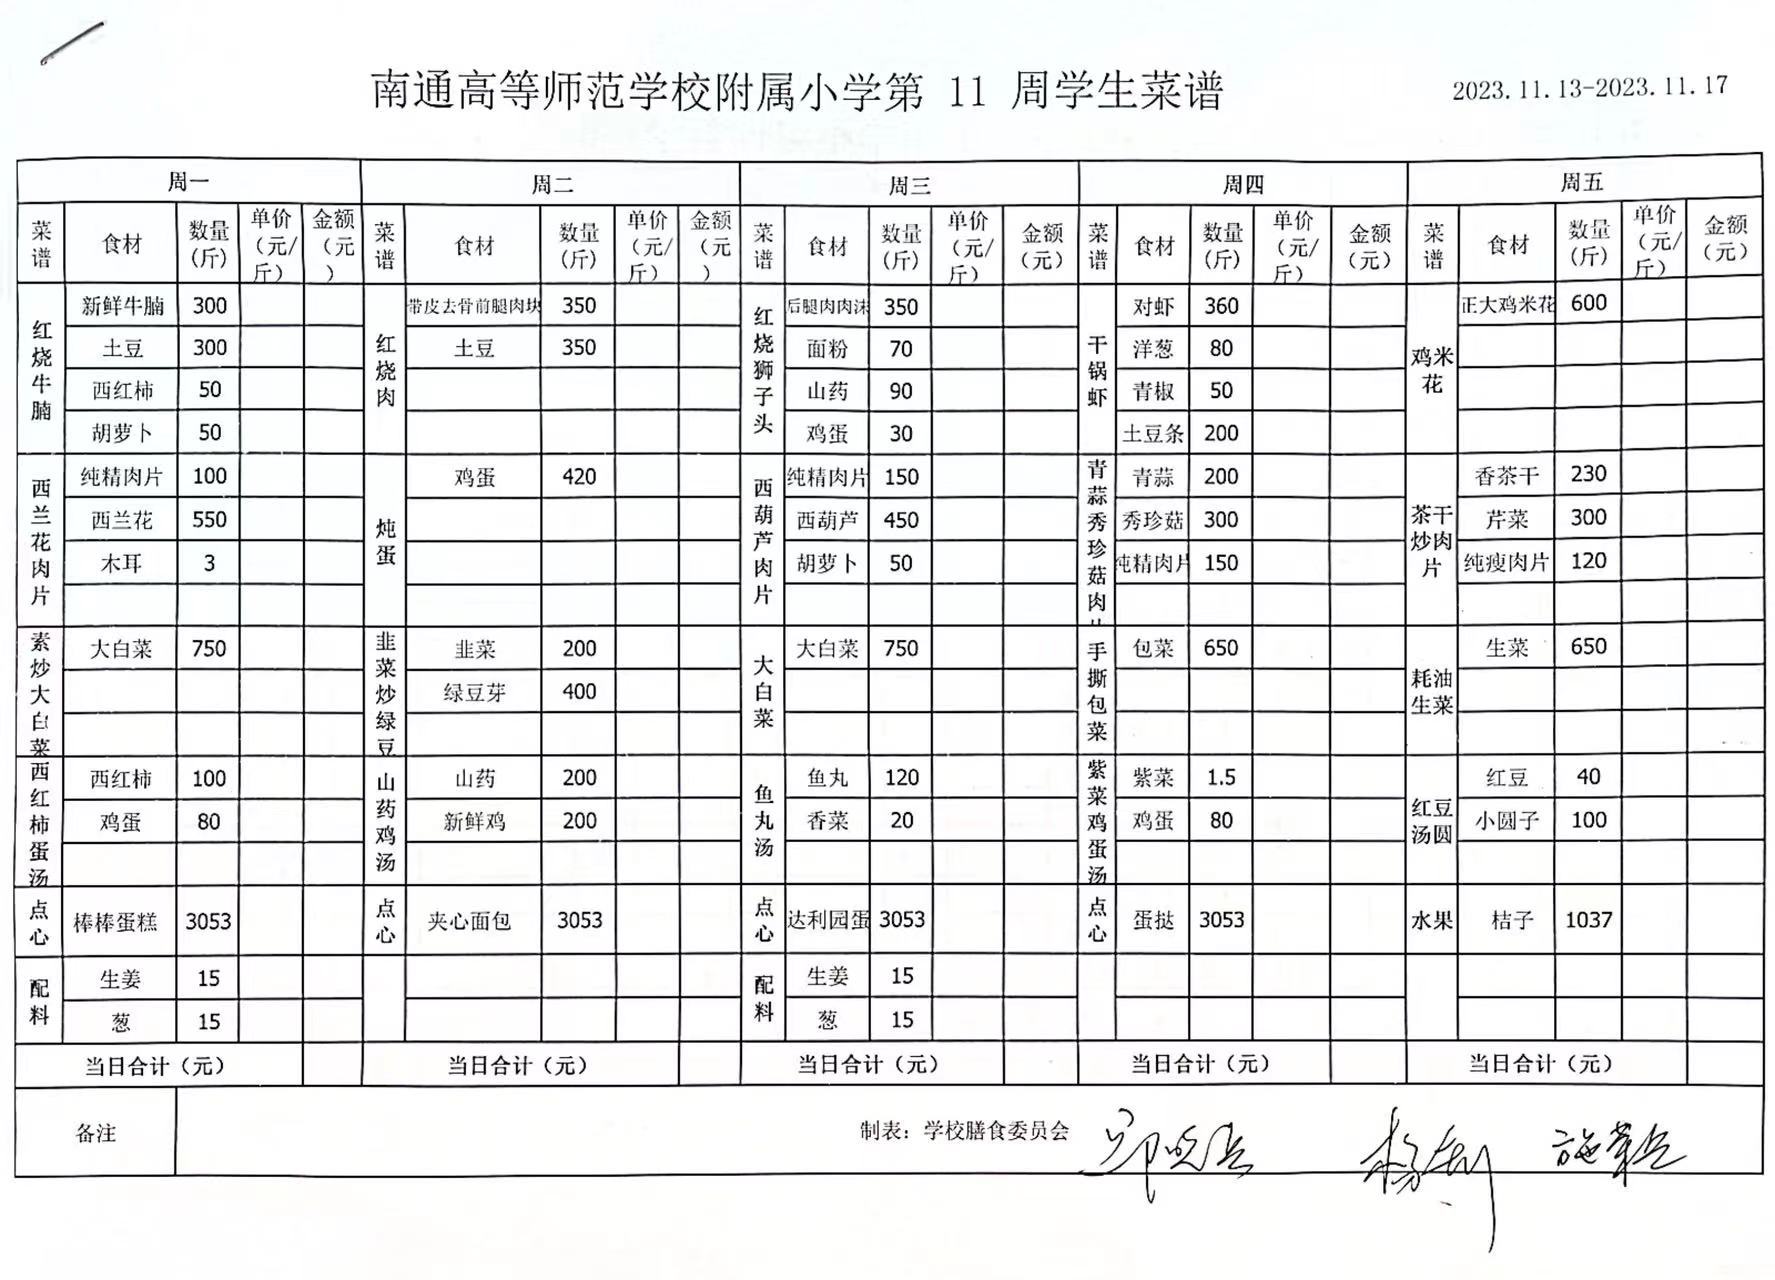 南通高等师范学校附属小学第 11 周学生菜谱 2023.11.13-2023.11.17
周一 周二 周三 周四 周五
菜谱 食材 数量(斤) 单价(元/斤) 金额(元) 菜谱 食材 数量(斤) 单价(元/斤) 金额(元) 菜谱 食材 数量(斤) 单价(元/斤) 金额(元) 菜谱 食材 数量(斤) 单价(元/斤) 金额(元) 菜谱 食材 数量(斤) 单价(元/斤) 金额(元)
红烧牛腩 新鲜牛腩 300 红烧肉 带皮去骨前腿肉块 350 红烧狮子头 后腿肉肉沫 350 干锅虾 对虾 360 鸡米花 正大鸡米花 600
土豆 300 土豆 350 面粉 70 洋葱 80
西红柿 50 山药 90 青椒 50
胡萝卜 50 鸡蛋 30 土豆条 200
西兰花肉片 纯精肉片 100 炖蛋 鸡蛋 420 西葫芦肉片 纯精肉片 150 青蒜秀珍菇肉 青蒜 200 茶干炒肉片 香茶干 230
西兰花 550 西葫芦 450 秀珍菇 300 芹菜 300
木耳 3 胡萝卜 50 纯精肉片 150 纯瘦肉片 120
素炒大白菜 大白菜 750 韭菜炒绿豆 韭菜 200 大白菜 大白菜 750 手撕包菜 包菜 650 耗油生菜 生菜 650
绿豆芽 400
西红柿蛋汤 西红柿 100 山药鸡汤 山药 200 鱼丸汤 鱼丸 120 紫菜鸡蛋汤 紫菜 1.5 红豆汤圆 红豆 40
鸡蛋 80 新鲜鸡 200 香菜 20 鸡蛋 80 小圆子 100
点心 棒棒蛋糕 3053 点心 夹心面包 3053 点心 达利园蛋 3053 点心 蛋挞 3053 水果 桔子 1037
配料 生姜 15 配料 生姜 15
葱 15 葱 15
当日合计（元） 当日合计（元） 当日合计（元） 当日合计（元） 当日合计（元）
备注 制表：学校膳食委员会